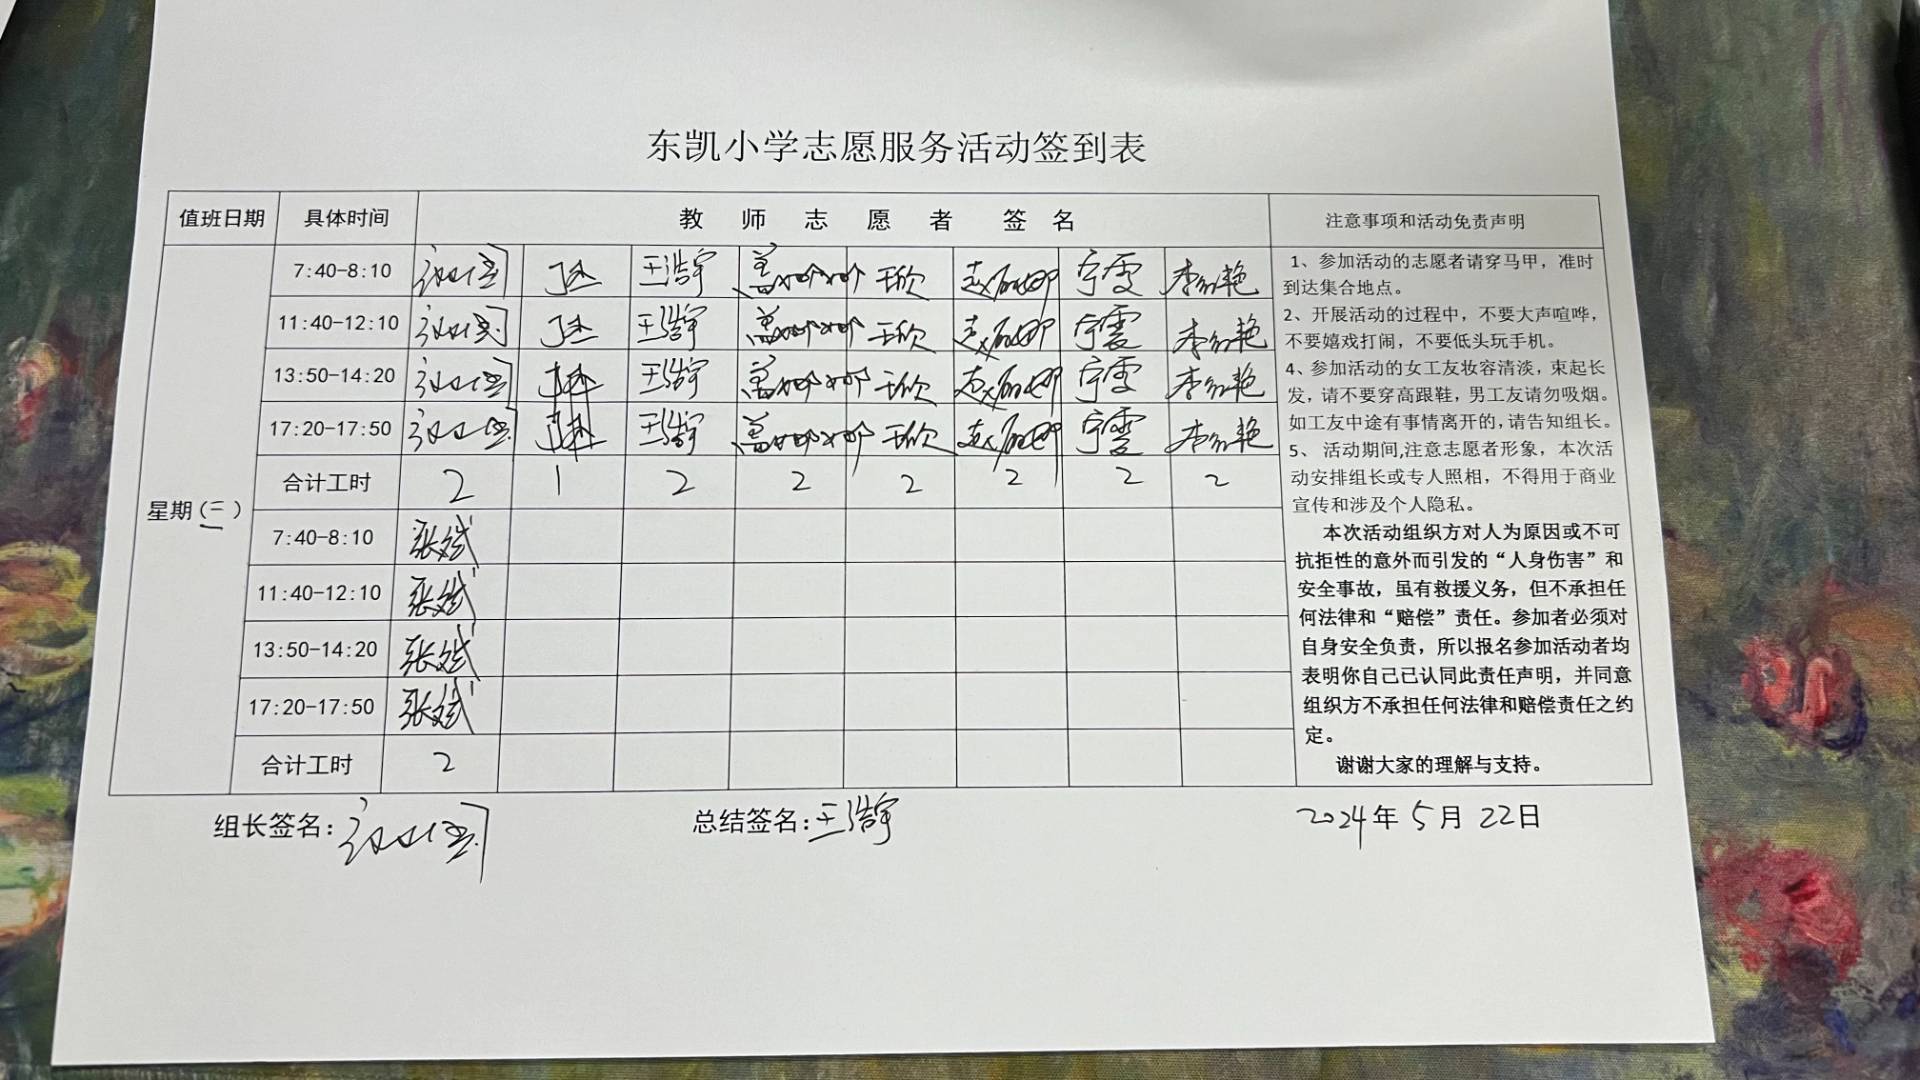 东凯小学志愿服务活动签到表
值班日期 具体时间 教师志愿者签名 注意事项和活动免责声明
7:40-8:10 王浩宇 王欣 宁雯 李红艳
11:40-12:10 王浩宇 王欣 宁雯 李红艳
13:50-14:20 王浩宇 王欣 宁雯 李红艳
17:20-17:50 王浩宇 王欣 宁雯 李红艳
合计工时 2 1 2 2 2 2 2 2
星期(三)
7:40-8:10 张斌
11:40-12:10 张斌
13:50-14:20 张斌
17:20-17:50 张斌
合计工时 2
1、参加活动的志愿者请穿马甲，准时
到达集合地点。
2、开展活动的过程中，不要大声喧哗，
不要嬉戏打闹，不要低头玩手机。
4、参加活动的女工友妆容清淡，束起长
发，请不要穿高跟鞋，男工友请勿吸烟。
如工友中途有事情离开的，请告知组长。
5、 活动期间,注意志愿者形象，本次活
动安排组长或专人照相，不得用于商业
宣传和涉及个人隐私。
本次活动组织方对人为原因或不可
抗拒性的意外而引发的“人身伤害”和
安全事故，虽有救援义务，但不承担任
何法律和“赔偿”责任。参加者必须对
自身安全负责，所以报名参加活动者均
表明你自己已认同此责任声明，并同意
组织方不承担任何法律和赔偿责任之约
定。
谢谢大家的理解与支持。
组长签名：
总结签名：王浩宇
2024年5月22日